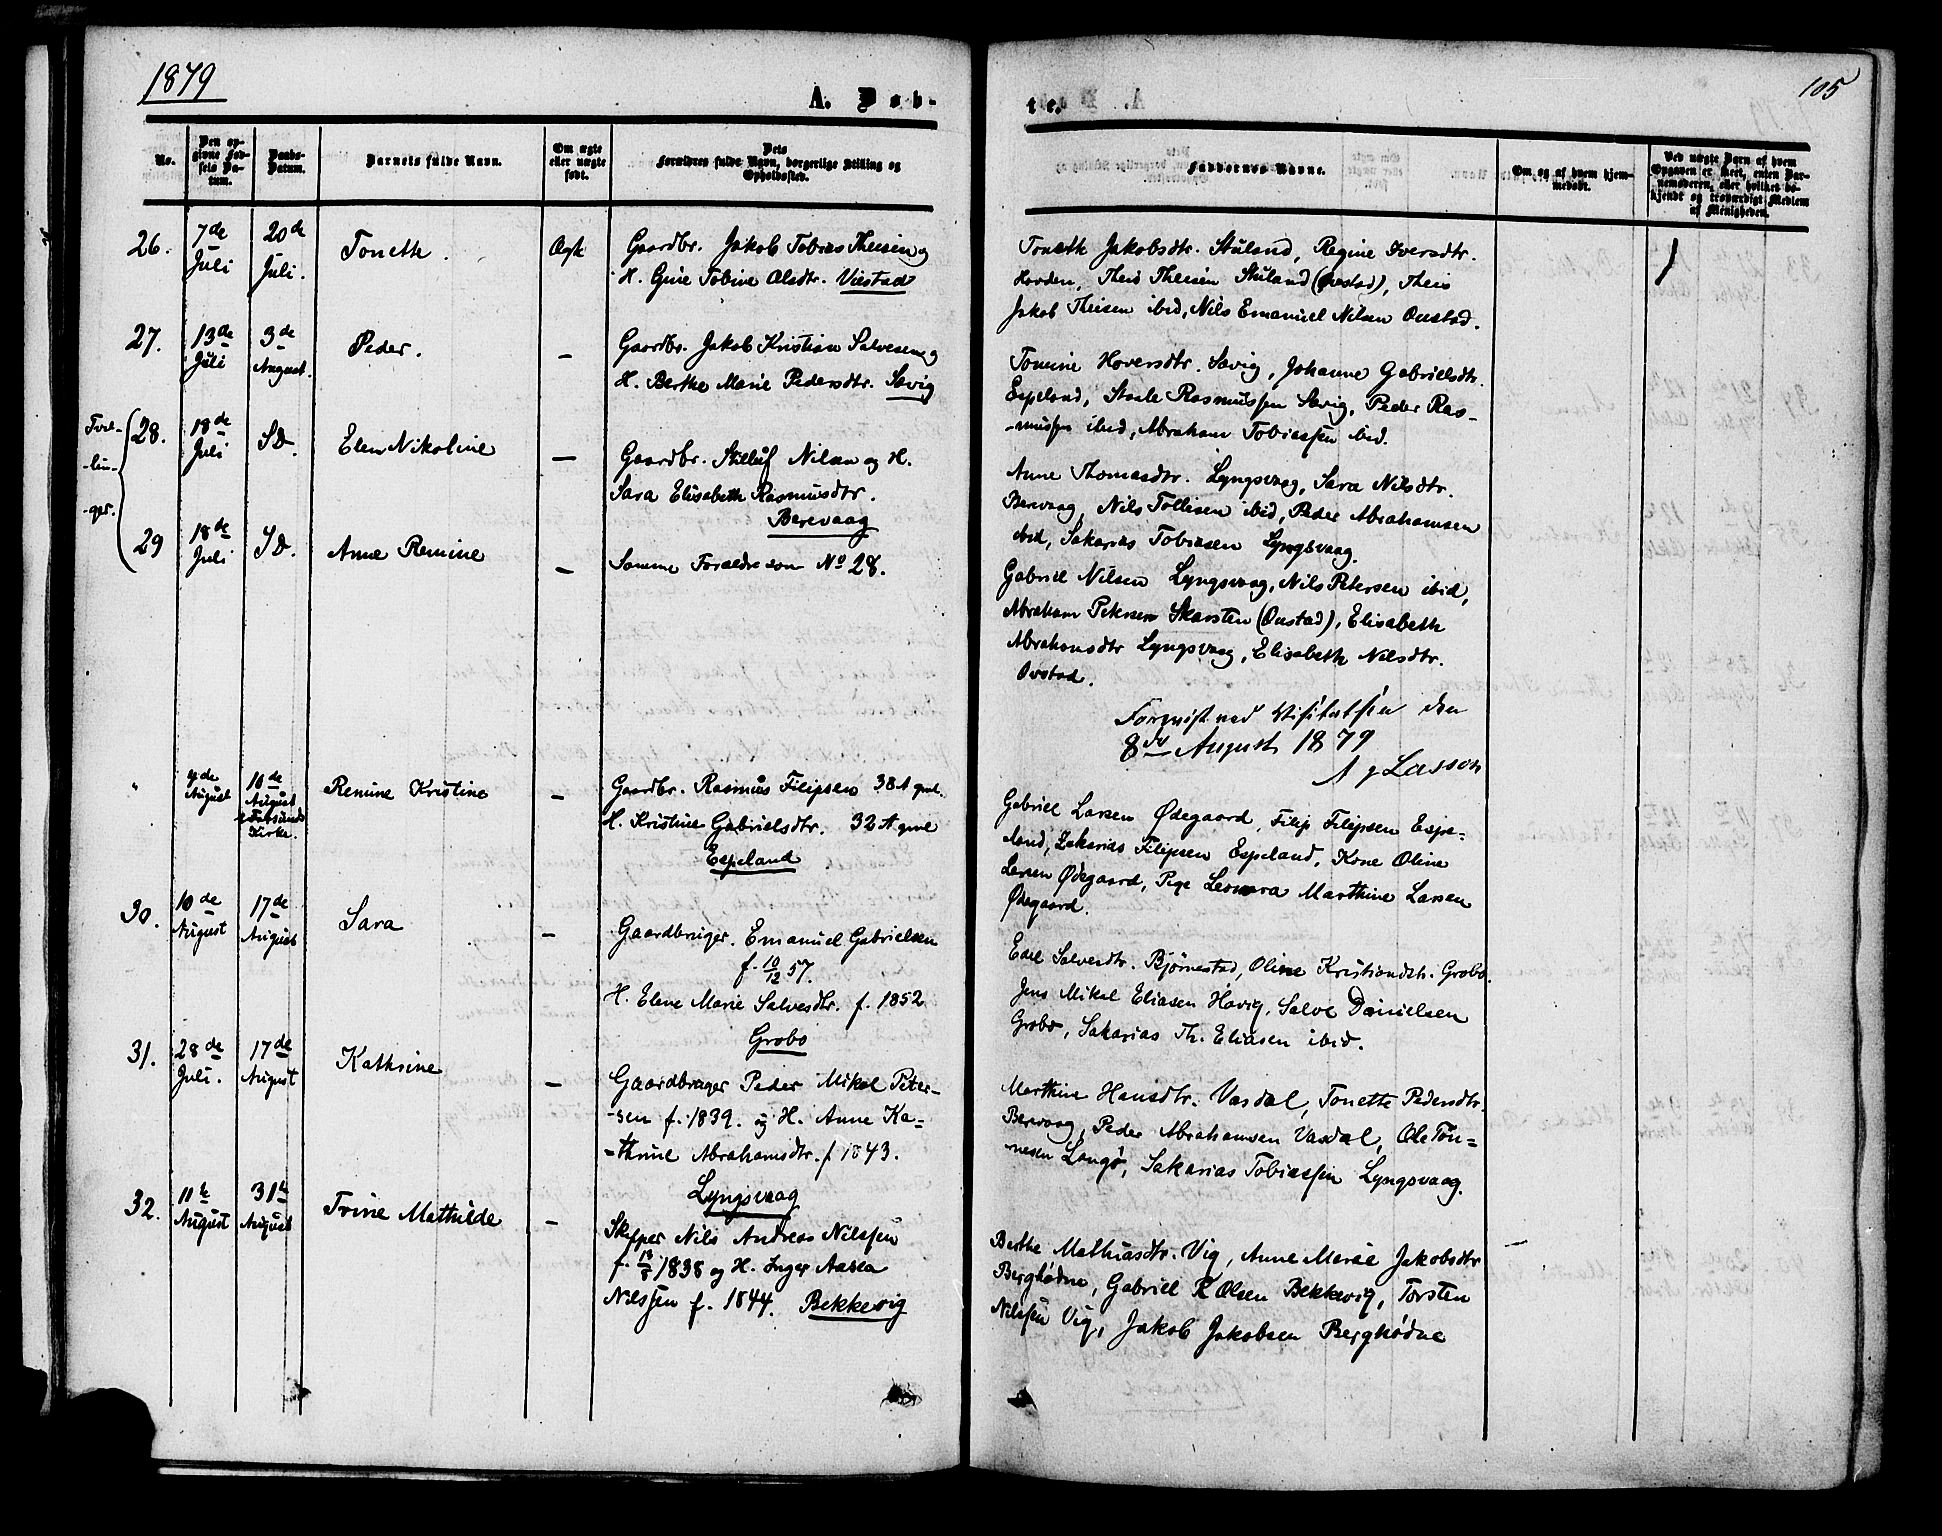 1879
105
A. Døb-
te.
No.
Den op-
givne Fød-
sels Da-
tum.
Daabs-
Datum.
Barnets fulde Navn.
Om ægte
eller uægte
født.
Dets
Forældres fulde Navn, borgerlige Stilling og
Opholdssted.
Faddernes Navne.
Om og af hvem hjem-
medøbt.
Ved uægte Barn af hvem
Opgaven er skeet, enten Bar-
nemoderen, eller hvilket be-
kjendt og troværdigt Medlem
af Menigheden.
26.
7de
Juli
20de
Juli.
Toneth.
Ægte
Gaardbr. Jakob Tobias Theisen og
H. Gine Tobine Olsdtr. Viestad
Toneth Jakobsdtr. Stuland, Regine Iversdtr.
Hovden, Theis Theisen Stuland (Øvstad), Theis
Jakob Theisen ibid, Nils Emanuel Nilsen Ovstad.
27.
13de
Juli
3de
August.
Peder.
—
Gaardbr. Jakob Kristian Salvesen og
H. Berthe Marie Pedersdtr. Sævig
Tomine Hoversdtr. Sævig, Johanne Gabrielsdtr.
Espeland, Staale Rasmussen Sævig, Peder Ras-
-mussen ibid, Abraham Tobiassen ibid.
Tvil-
-lin-
-ger.
28.
18de
Juli
SD.
Elen Nikoline
—
Gaardbr. Nilsen og H.
Sara Elisabeth Rasmusdtr.
Berevaag
Anne Thomasdtr. Lyngsvaag, Sara Nilsdtr.
Berevaag, Nils Tollisen ibid, Peder Abrahamsen
ibid, Sakarias Tobiasen Lyngsvaag.
29
18de
Juli
SD.
Anne Remine
—
Samme Forældre som No 28.
Gabriel Nilsen Lyngsvaag, Nils Petersen ibid,
Abraham Petersen Skarsten (Ovstad), Elisabeth
Abrahamsdtr Lyngsvaag, Elisabeth Nilsdtr.
Ovstad.
Forevist ved Visitatsen den
8de August 1879
Lasson
"
4de
August
10de
August
Farsunds
Kirke.
Remine Kristine
—
Gaardbr. Rasmus Filipsen 38 A gml.
H. Kristine Gabrielsdtr. 32 A gml
Espeland
Gabriel Larsen Ødegaard, Filip Filipsen Espe-
land, Zakarias Filipsen Espeland, Kone Oline
Larsen Ødegaard, Pige Leonora Marthine Larsen
Ødegaard.
30.
10de
August
17de
August
Sara
—
Gaardbruger. Emanuel Gabrielsen
f. 10/12 57.
H. Elene Marie Salvesdtr. f. 1852
Grobo
Edel Salvesdtr. Bjørnestad, Oline Kristiansdtr. Grobo.
Jens Mikal Eliasen Høvig, Salve Danielsen
Grobo, Sakarias Th. Eliasen ibid.
31.
28de
Juli.
17de
August
Kathrine
—
Gaardbruger Peder Mikal Peter-
-sen f. 1839. og H. Anne Ka-
-thrine Abrahamsdtr. f 1843.
Lyngsvaag
Marthine Hansdtr. Vasdal, Tonette Pedersdtr.
Berevaag, Peder Abrahamsen Vasdal, Ole Tøn-
nesen Langø, Sakarias Tobiassen Lyngsvaag.
32.
11te
August
31te
August
Trine Mathilde
—
Skipper Nils Andreas Nilssen
f. 1838 og H. Inger Aasea
Nilssen f. 1844. Bekkevig
Berthe Mathiasdtr. Vig, Anne Marie Jakobsdtr
Berghødne, Gabriel R Olsen Bekkevig, Torsten
Nilssen Vig, Jakob Jakobsen Berghødne
—